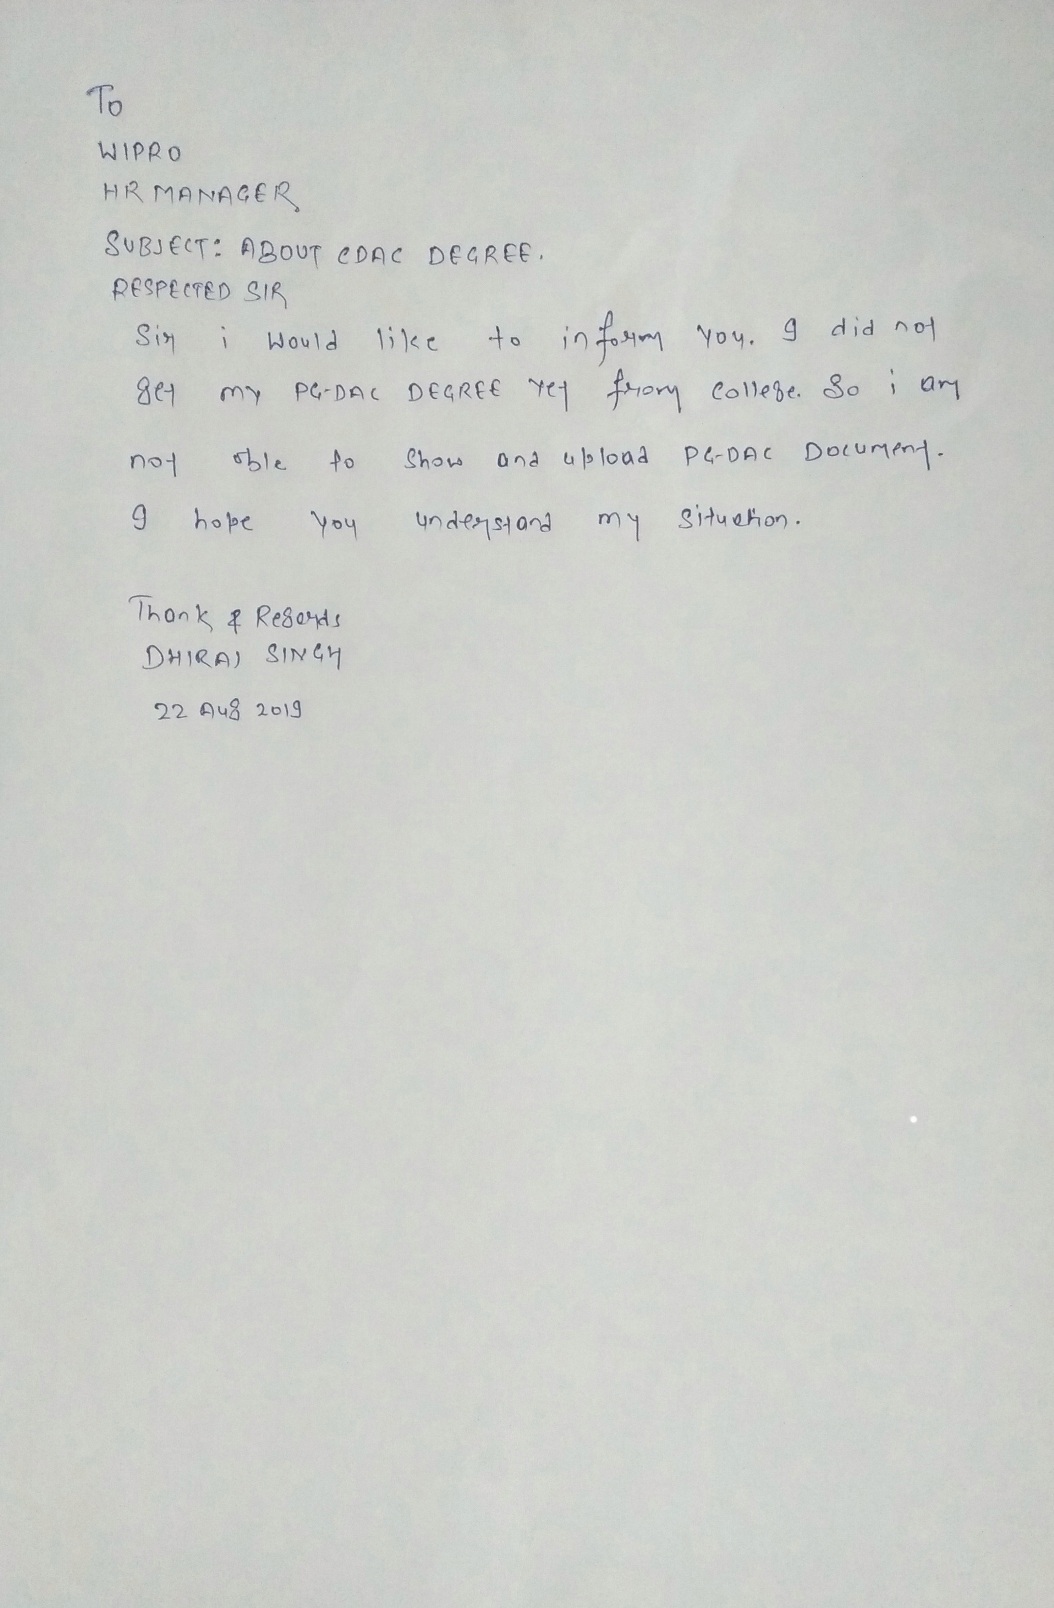 To
WIPRO
HR MANAGER
SUBJECT: ABOUT CDAC DEGREE.
RESPECTED SIR
Sir i would like to inform you. I did not
get my PG-DAC DEGREE Yet from college. So i am
not able to show and upload PG-DAC Document.
I hope you understand my situation.
Thank & Regards
DHIRAJ SINGH
22 Aug 2019